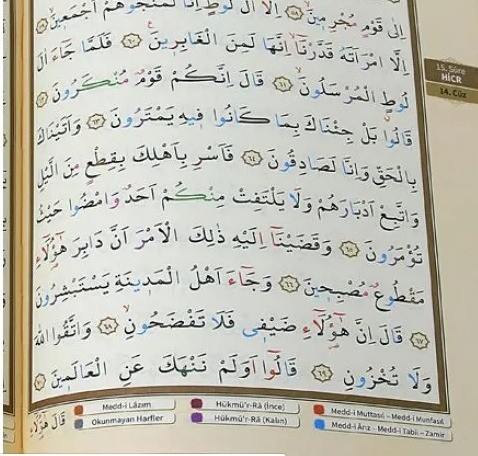 اِلٰى قَوْمٍ مُجْرِمٖينَ ﴿٥٨﴾ اِلَّٓا اٰلَ لُوطٍ اِنَّا لَمُنَجُّوهُمْ اَجْمَعٖينَ ﴿٥٩﴾
اِلَّا امْرَاَتَهُ قَدَّرْنَٓا اِنَّهَا لَمِنَ الْغَابِرٖينَ ﴿٦٠﴾ فَلَمَّا جَٓاءَ اٰلَ
لُوطٍ الْمُرْسَلُونَ ﴿٦١﴾ قَالَ اِنَّكُمْ قَوْمٌ مُنْكَرُونَ ﴿٦٢﴾
قَالُوا بَلْ جِئْنَاكَ بِمَا كَانُوا فٖيهِ يَمْتَرُونَ ﴿٦٣﴾ وَاَتَيْنَاكَ
بِالْحَقِّ وَاِنَّا لَصَادِقُونَ ﴿٦٤﴾ فَاَسْرِ بِاَهْلِكَ بِقِطْعٍ مِنَ الَّيْلِ
وَاتَّبِعْ اَدْبَارَهُمْ وَلَا يَلْتَفِتْ مِنْكُمْ اَحَدٌ وَامْضُوا حَيْثُ
تُؤْمَرُونَ ﴿٦٥﴾ وَقَضَيْنَٓا اِلَيْهِ ذٰلِكَ الْاَمْرَ اَنَّ دَابِرَ هٰٓؤُلَٓاءِ
مَقْطُوعٌ مُصْبِحٖينَ ﴿٦٦﴾ وَجَٓاءَ اَهْلُ الْمَدٖينَةِ يَسْتَبْشِرُونَ
﴿٦٧﴾ قَالَ اِنَّ هٰٓؤُلَٓاءِ ضَيْفٖى فَلَا تَفْضَحُونِ ﴿٦٨﴾ وَاتَّقُوا اللّٰهَ
وَلَا تُخْزُونِ ﴿٦٩﴾ قَالُٓوا اَوَلَمْ نَنْهَكَ عَنِ الْعَالَمٖينَ ﴿٧٠﴾
قَالَ هٰٓؤُلَٓاءِ
15. Sûre
HİCR
14. Cüz
Medd-i Lâzım Hükmü'r-Râ (İnce) Medd-i Muttasıl - Medd-i Munfasıl
Okunmayan Harfler Hükmü'r-Râ (Kalın) Medd-i Ârız - Medd-i Tabiî - Zamir